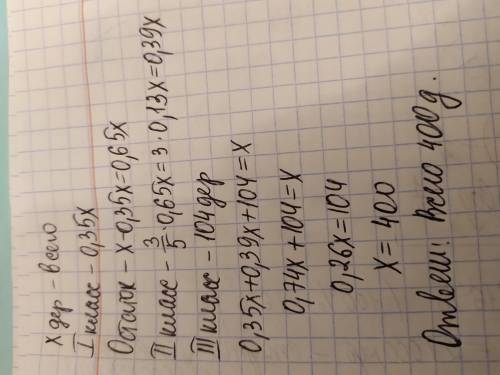 x дер - всего
I класс - 0,35x
Остаток - x - 0,35x = 0,65x
II класс - 3/5 · 0,65x = 3 · 0,13x = 0,39x
III класс - 104 дер
0,35x + 0,39x + 104 = x
0,74x + 104 = x
0,26x = 104
x = 400
Ответ: Всего 400 д.